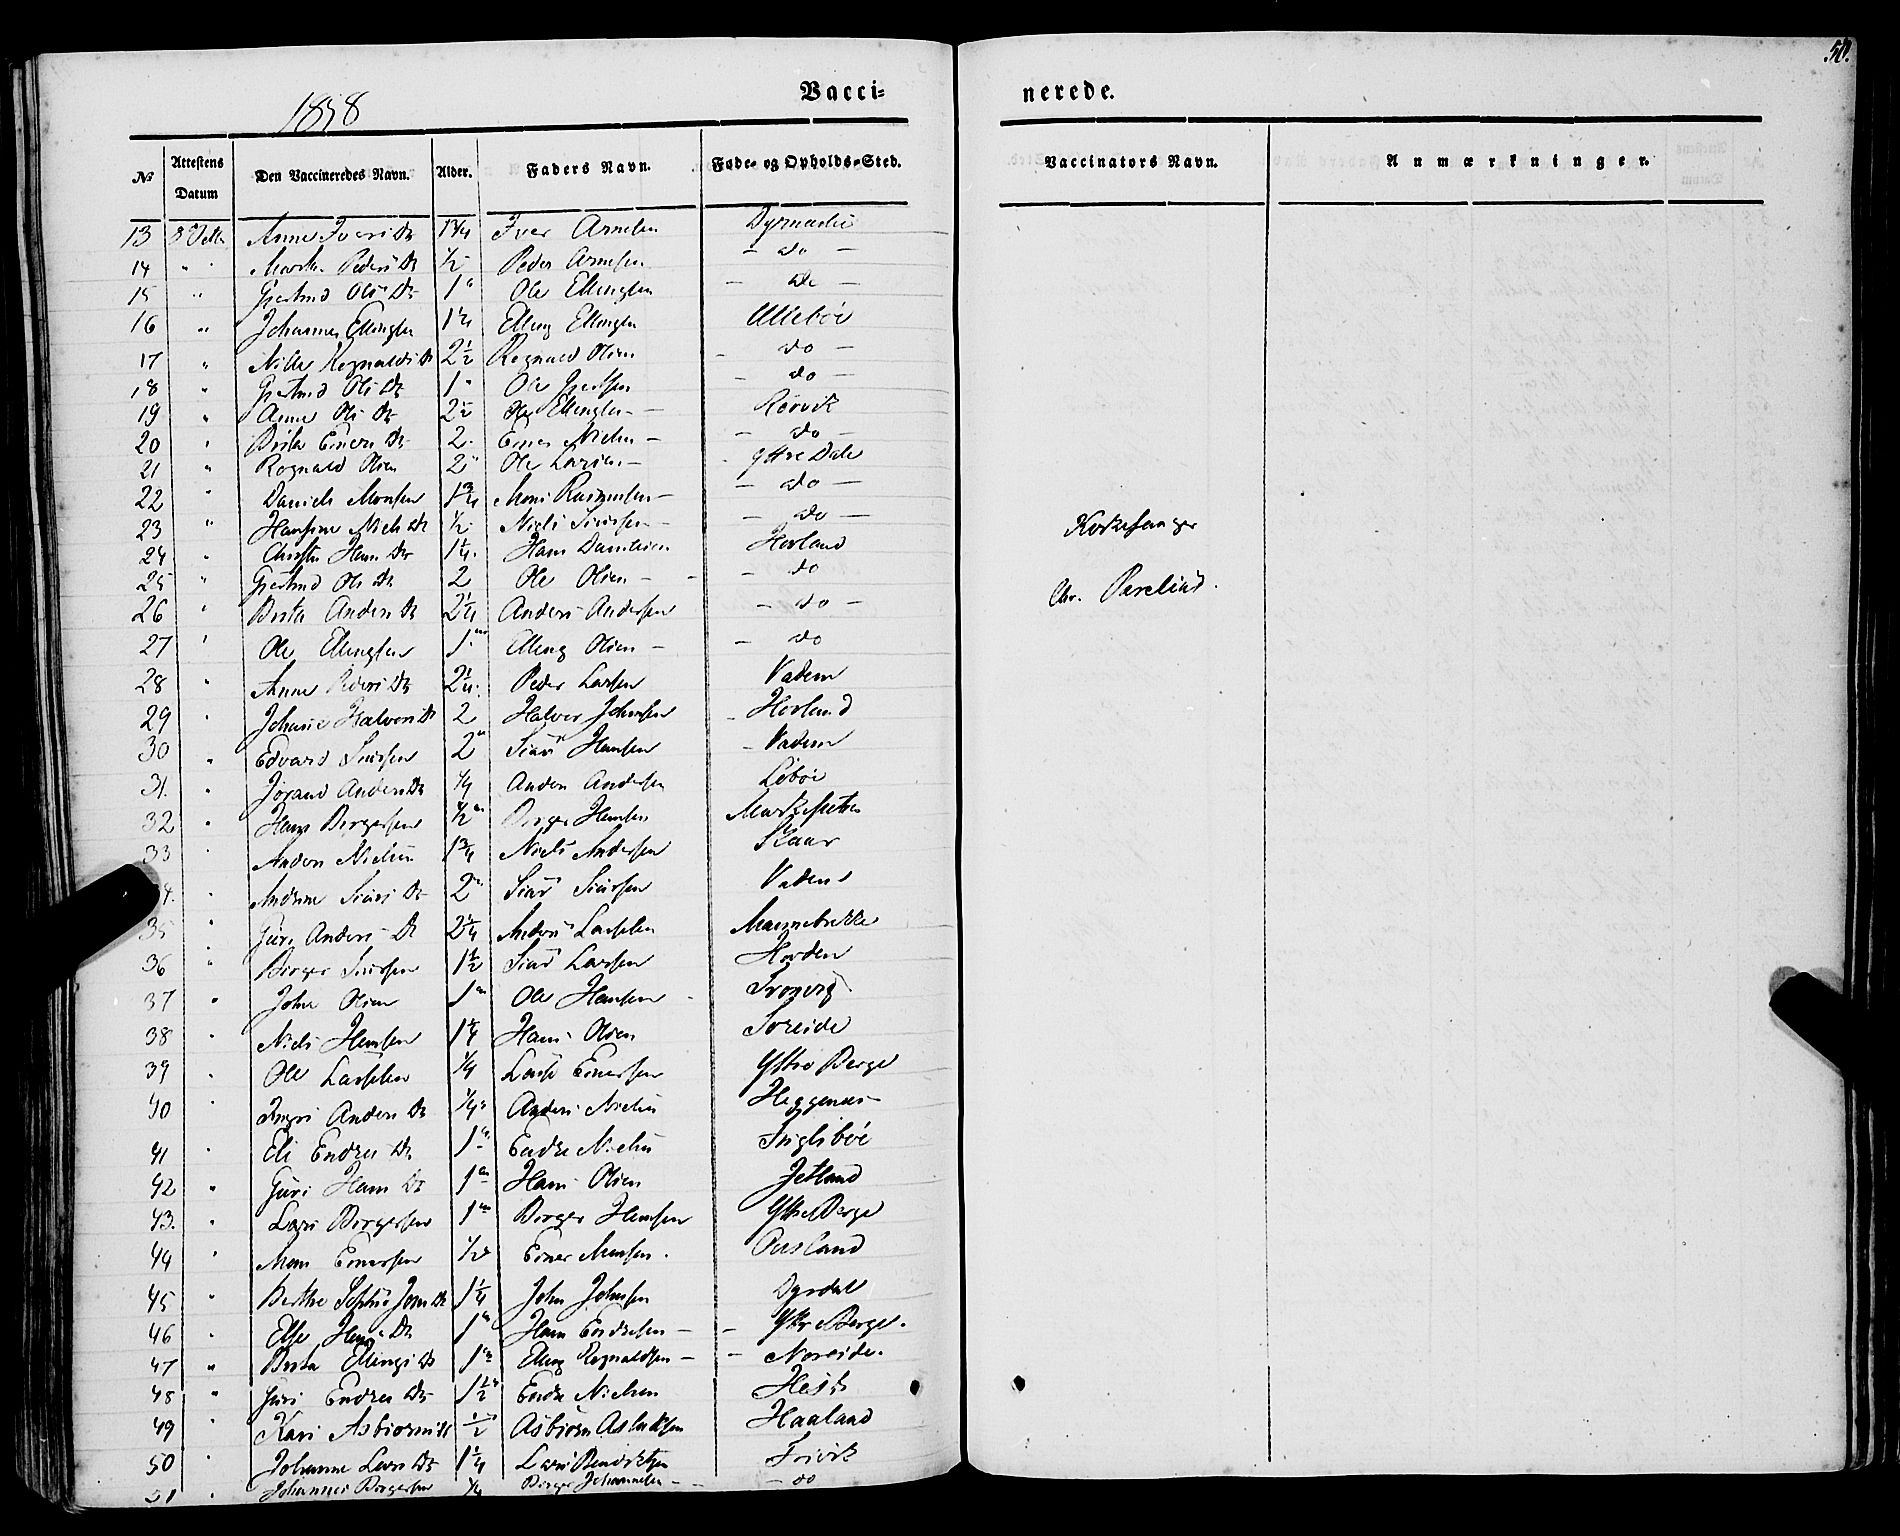 50.
1858
Vacci-
nerede.
No Attestens Datum Den Vaccineredes Navn. Alder. Faders Navn. Føde- og Opholds-Sted. Vaccinators Navn. Anmærkninger.
13 8 Anne Ivers Dr 1 3/4 Iver Arnesen
14 " Peders Dr 1/2 Peder Arnesen - do -
15 " Gjertrud Ols Dr 1 " Ole Ellingsen - do -
16 " Johannes Ellingsen Elling Ellingsen Ullebøe
17 " Rognalds Dr 2 1/2 Rognald Olsen - do -
18 " Gjertrud Ols Dr 1 " Ole - do -
19 " Anne Ols Dr 2 1/2 Ole Ellingsen - Rørvik
20 " Brita Eners Dr 2 Ener Nielsen - - do -
21 " Rognald Olsen 2 " Ole Larsen - Yttre Dale
22 " Daniels Monsen 1 3/4 Mons Rasmussen - - do -
23 " Hansine Niels Dr 1/2 Niels Siursen - - do -
24 " Hans Dr 1 1/4 Hans Danielsen Hovland
25 " Gjertrud Ols Dr 2 Ole Olsen - - do
26 " Brita Anders Dr 2 1/4 Anders Andersen - do -
27 " Ole Ellingsen 1 Elling Olsen - - do
28 " Anne Peders Dr 2 1/4 Peder Larsen Vadem
29 " Halvors Dr 2 Halvor Johnsen Hovland
30 " Edvard Siursen 2 " Siur Hansen - Vadem
31. " Jorand Anders Dr 1/4 Anders Andersen Lebøe
32 " Hans Birgersen 1/2 Birger Hansen
33 " Anders Nielsen 1 3/4 Niels Andersen Skaar
4. " Andrine Siurs Dr 2 " Siur Siursen Vadem
35 " Guri Anders Dr 2 1/4 Anders Lassesen Mannebrekke
36 " Birger Siursen 1 1/2 Siur Larsen Horden
37 " John Olsen 1 Ole Hansen
38 " Niels Hansen 1 1/4 Hans Olsen Søreide
39 " Ole Lassesen 1/4 Lasse Enersen Yttre Berge
40 " Ingri Anders Dr 1/4 " Anders Nielsen Heggenæs
41 " Eli Endres Dr 1 Endre Nielsen Inglebøe
42 " Guri Hans Dr 1 Hans Olsen Jetland
43. " Lars Birgersen 1 Birger Hansen Yttre Berge
44 " Mons Enersen 1/2 Ener Monsen. Ousland
45 " Berthe Sophie Jons Dr 1 1/4 John Johnsen Dyrdal
46 " Else Hans Dr 1 " Hans Endresen - - Yttre Berge.
47 " Brita Ellings Dr 1 Elling Rognaldsen - - Noreide.
48 " Guri Endres Dr 1 1/2 Endre Nielsen
49 " Kari Asbiørns Dr 1/2 Asbiørn Aslaksen Haaland
50 " Johanne Lars Dr 1 1/4 Lars Bendiktsen
51 " Johannes Birgersen 1/4 Birger Johannesen - - do
Kirkesanger
Chr.